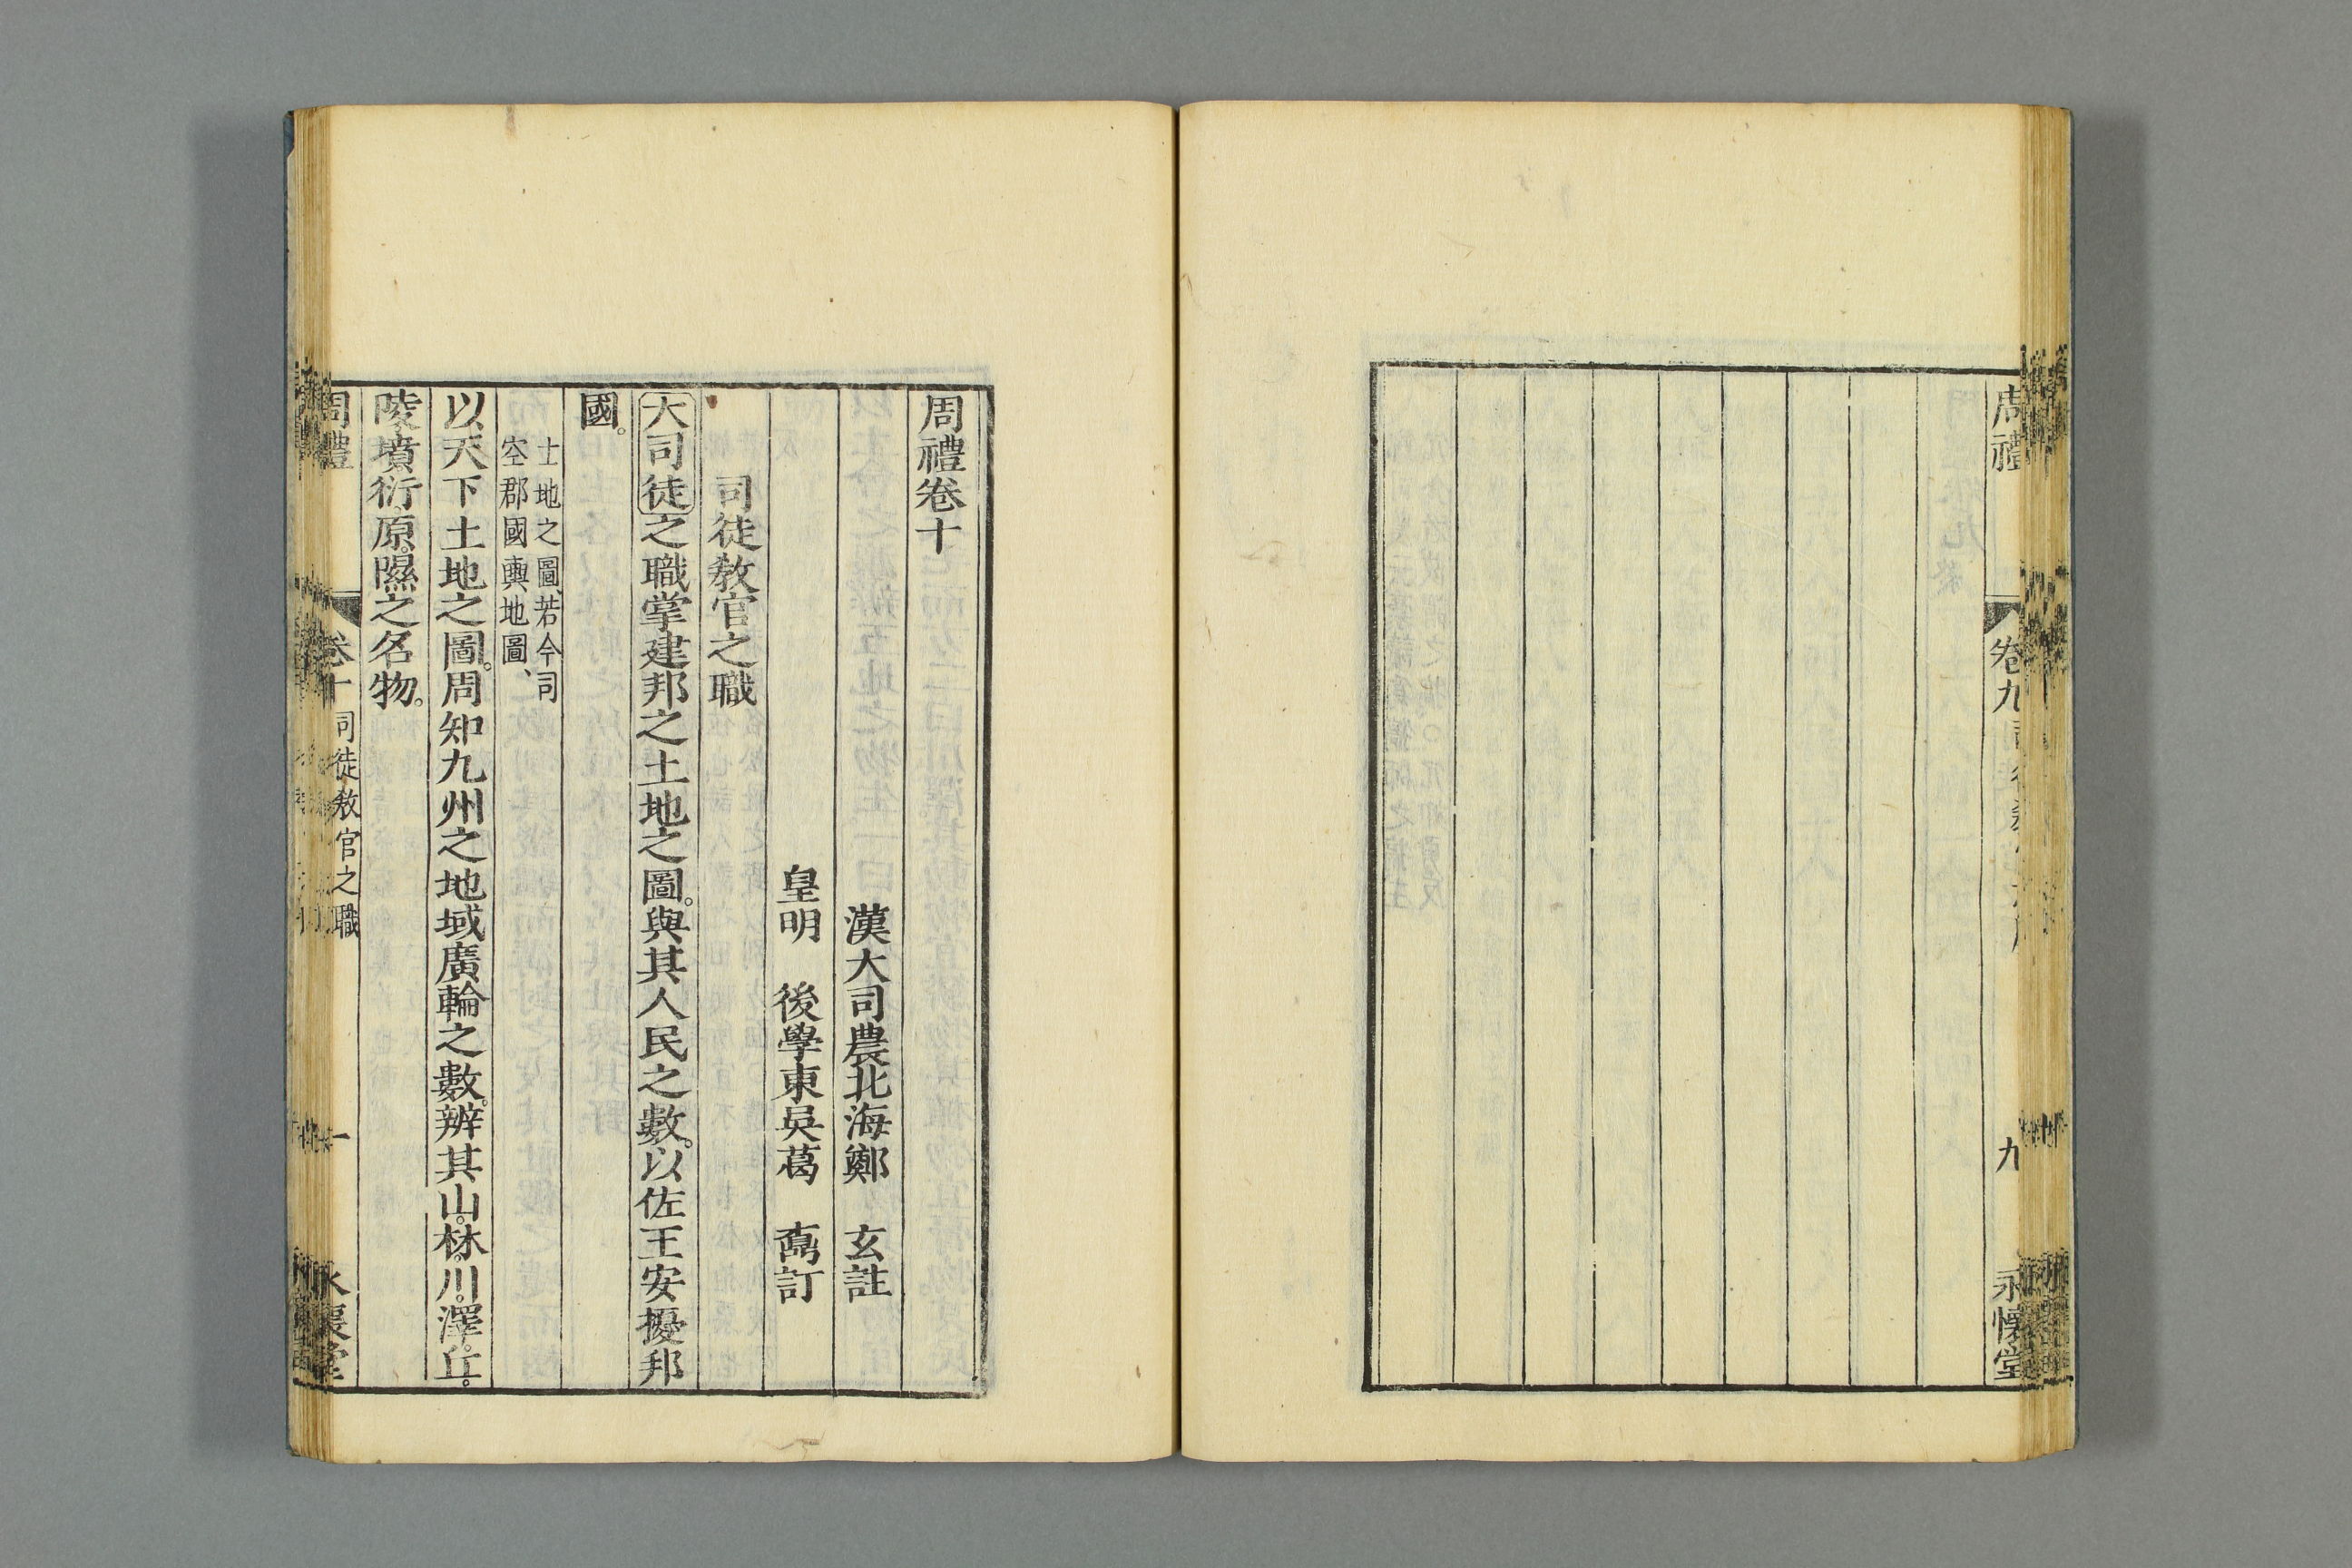 周禮
卷九
九
永懷堂
周禮卷十
漢大司農北海鄭　玄註
皇明　後學東吳葛　鼒訂
司徒敎官之職
大司徒之職掌建邦之土地之圖。與其人民之數。以佐王安擾邦
國。
土地之圖、若今司
空郡國輿地圖、
以天下土地之圖。周知九州之地域廣輪之數。辨其山。林。川。澤。丘。
陵。墳。衍。原。隰之名物。
周禮
卷十
司徒敎官之職
一
永懷堂